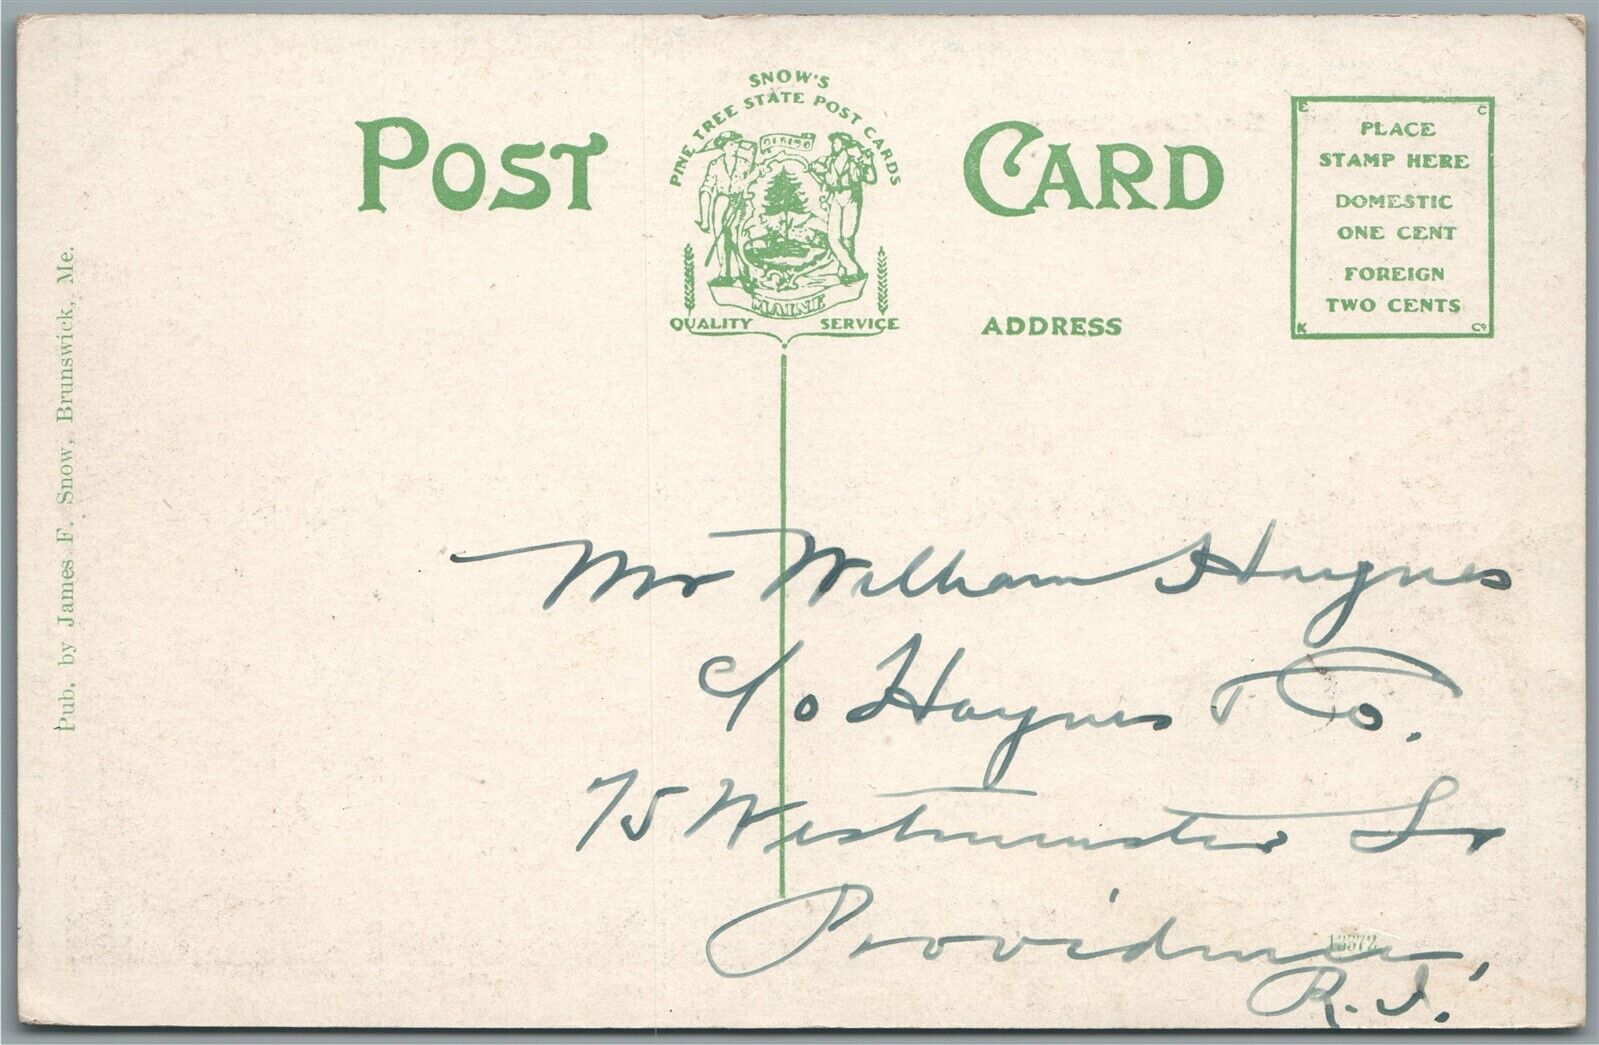 SNOW'S
PINE TREE STATE POST CARDS
POST CARD
DIRIGO
MAINE
QUALITY SERVICE
E C
PLACE
STAMP HERE
DOMESTIC
ONE CENT
FOREIGN
TWO CENTS
K Co
ADDRESS
Pub. by James F. Snow, Brunswick, Me.
Mr William Haynes
c/o Haynes & Co.
75 Westminster St
Providence,
R.I.
13372